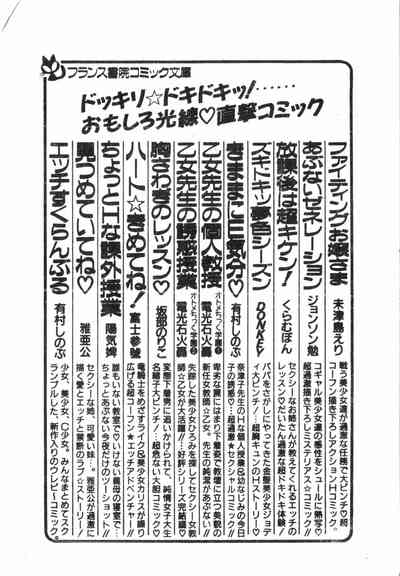 フランス書院コミック文庫
ドッキリ☆ドキドキッ!……
おもしろ光線♡直撃コミック
ファイティングお嬢さま 未津島えり
戦う美少女達が過激な任務で大ピンチの超
コーフン描き下ろしアクションHコミック!
あぶないゼネレーション ジョンソン勉
コギャル美少女達の感性をシュールに熱写♡
超過激描き下ろしミステリアス☆コミック!!
放課後は超キケン! くらむぼん
セクシーなお姉さんが教えてくれるエッチの
レッスン♡だいた〜ん過激な超ドキドキ体験!
ズキドキッ夢色シーズン DONKEY
パパをさがしにやってきた金髪美少女ジョデ
ィ大ピンチ!超胸キュンのHストーリー!
きままにH気分♡ 有村しのぶ
奈津子先生のHな個人授業&幼なじみの今日
子の誘惑…超過激★セクシャルコミック!!
乙女先生の個人教授 オトメちっく学園❶ 電光石火轟
卑劣な罠にはまり下着姿で教壇に立つ美貌の
新任女教師☆乙女。先生の純潔があぶない!!
乙女先生の誘惑授業 オトメちっく学園❷ 電光石火轟
失踪した美少女ひろみを探してセクシー女教
師☆乙女が大活躍!!好評シリーズ完結編♡
胸さわぎのレッスン♡ 坂部のりこ
変態下着男に追いかけられて、純情女子大生
名麗子大ピンチ!…超・危ない大胆コミック♡
ハート☆きめてね! 富士参號
竜騎士をめざすライク&美少女カリスが繰り
広げる超コーフン★エッチアドベンチャー!!
ちょっとHな課外授業 陽気婢
誰もいない教室で♡いけない義母の寝室で…
ちょっとあぶない今夜だけのツーショット!!
見つめていてね♡ 雅亜公
セクシーな姉、可愛い妹…。雅亜公が過激に
描く愛とエッチと禁断のラブ☆ストーリー!
エッチすくらんぶる 有村しのぶ
少女、美少女、C少女。みんなまとめてスク
ランブルした、新作入りのクレピ〜コミック。